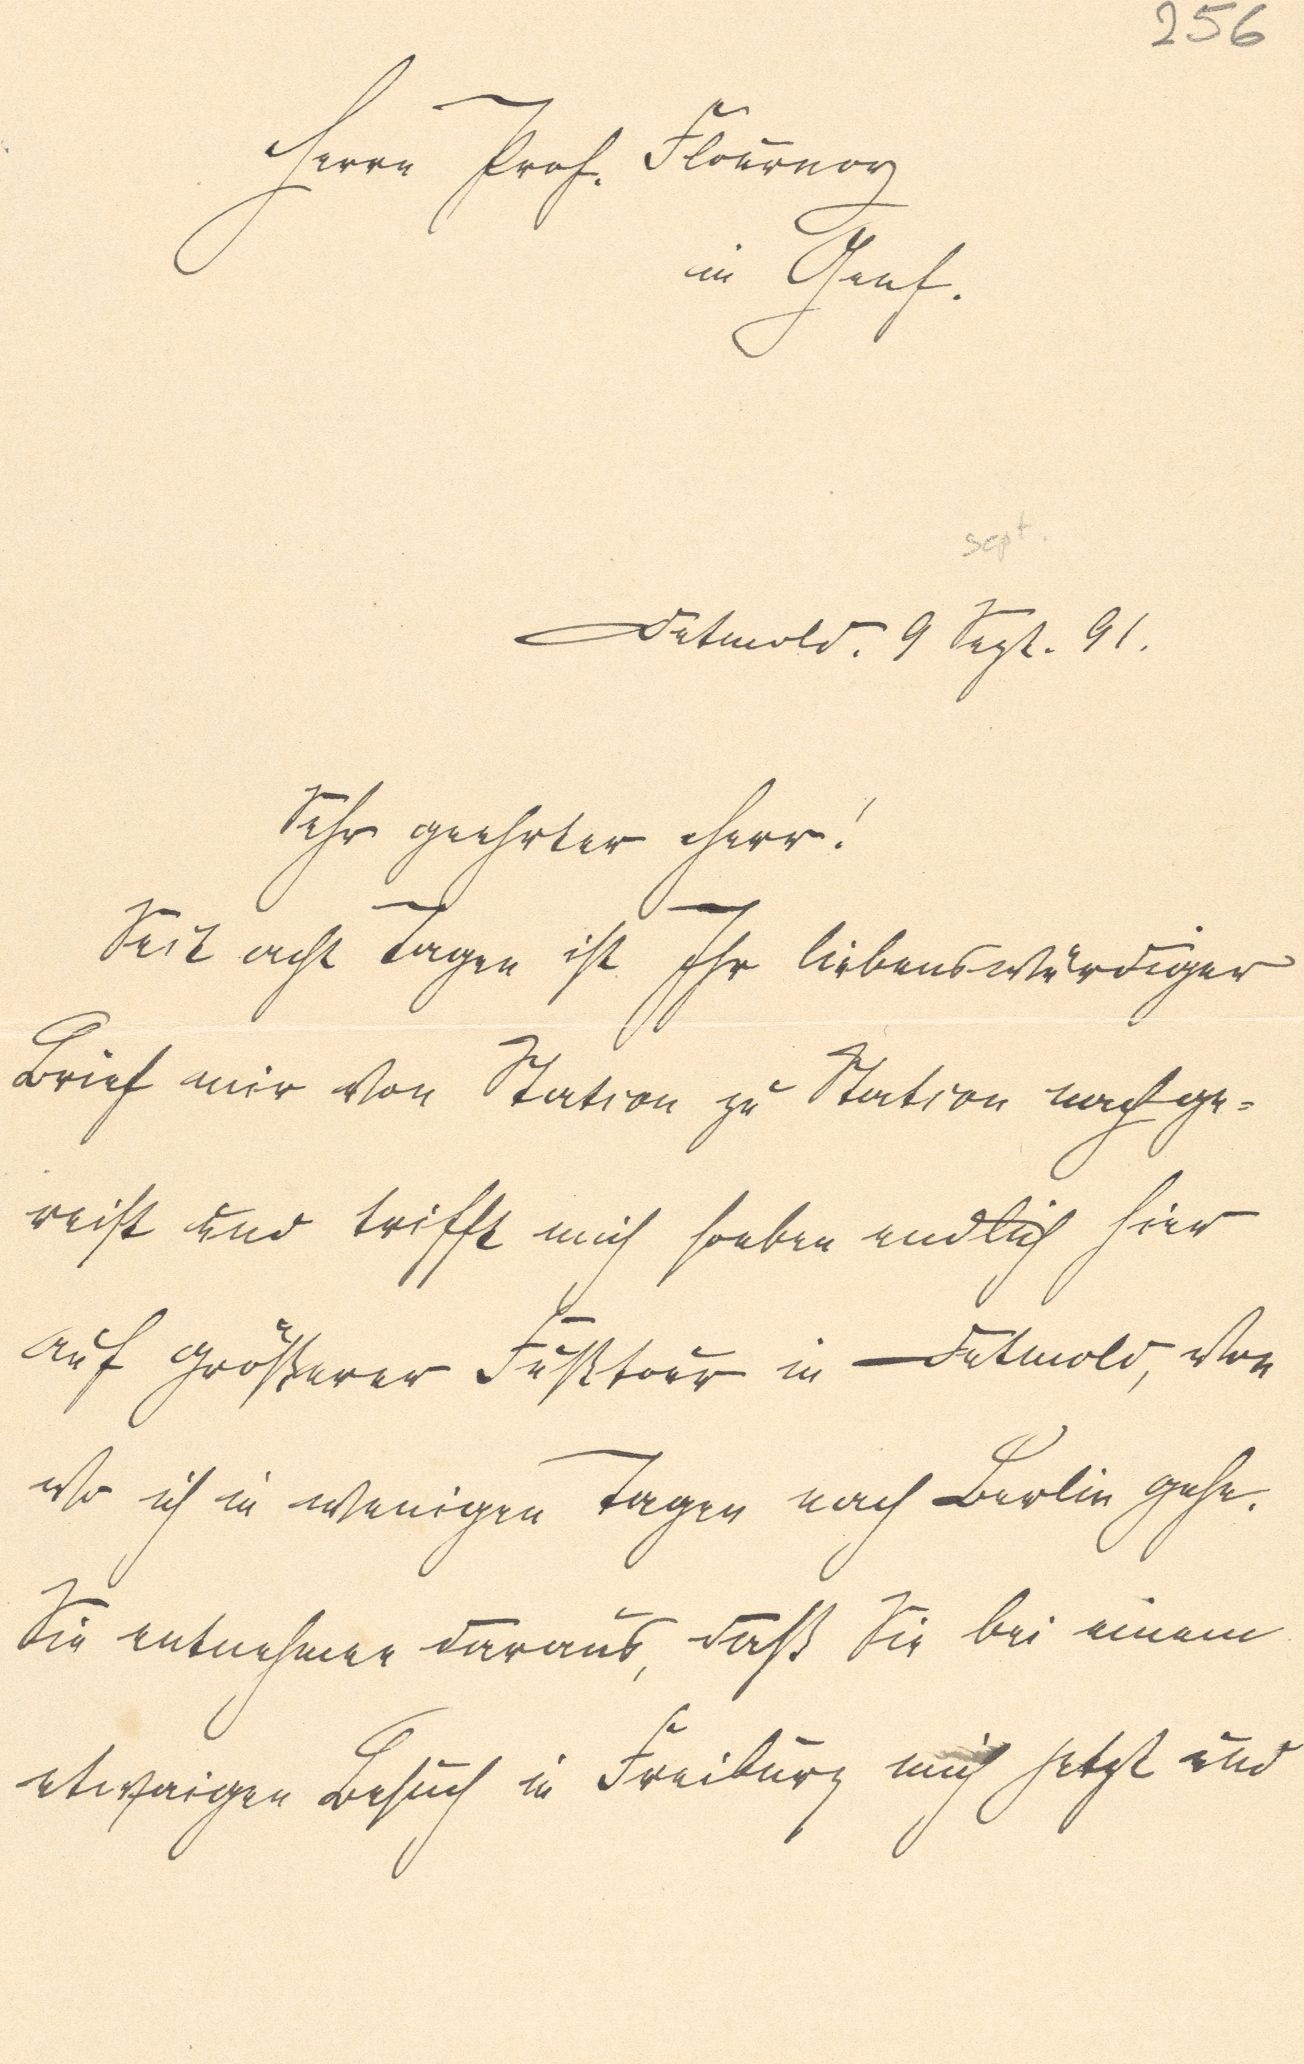 256
Herrn Prof. Flournoy
in Genf.
sept.
Detmold. 9 Sept. 91.
Sehr geehrter Herr!
Seit acht Tagen ist Ihr liebenswürdiger
Brief mir von Station zu Station nachge-
reist und trifft mich soeben endlich hier
auf größerer Fußtour in Detmold, von
wo ich in wenigen Tagen nach Berlin gehe.
Sie entnehmen daraus, daß Sie bei einem
etwaigen Besuch in Freiburg mich jetzt und